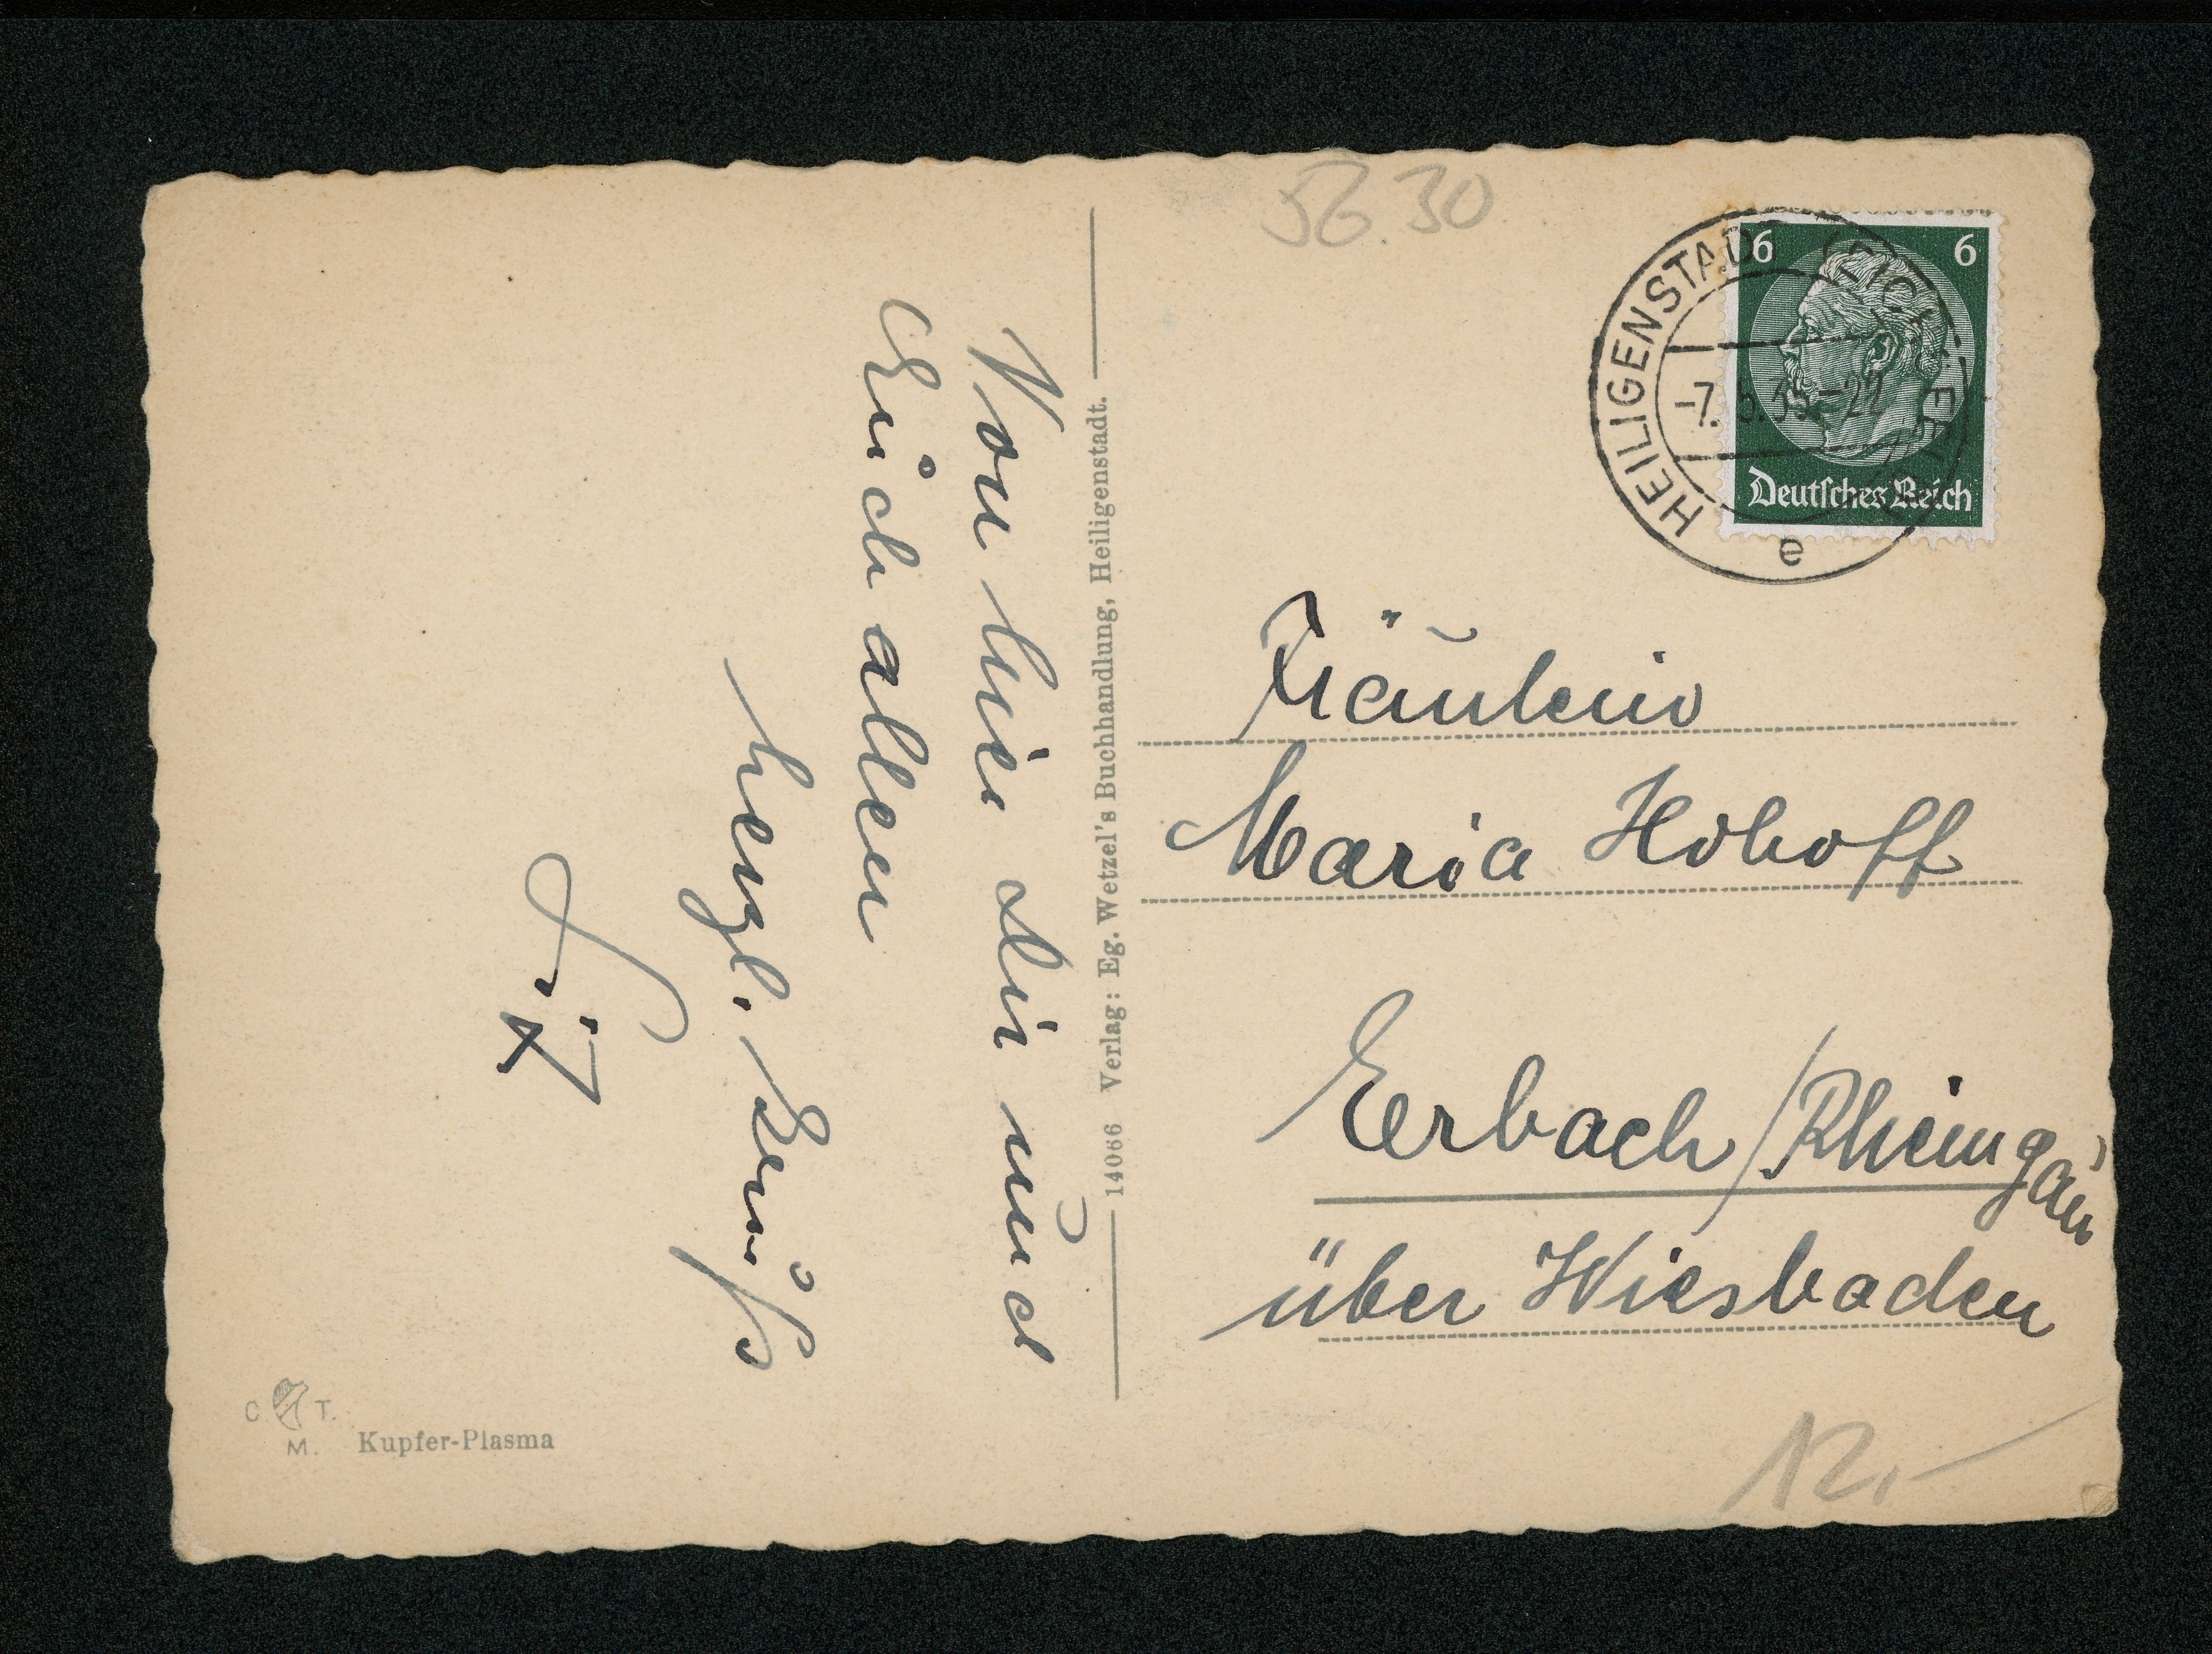 Von hier Dir und
Euch allen
herzl. Gruß
14066 Verlag: Eg. Wetzel's Buchhandlung, Heiligenstadt.
C. T.
M.
Kupfer-Plasma
56.30
6 6
Deutsches Reich
HEILIGENSTADT (EICHSFELD)
-7.5.35.-22
e
Fräulein
Maria Hohoff
Erbach/Rheingau
über Wiesbaden
12,-